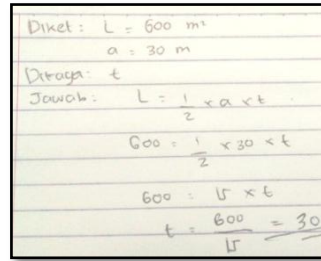 Diket : L = 600 m²
a = 30 m
Ditaya : t
Jawab : L = 1/2 x a x t
600 = 1/2 x 30 x t
600 = 15 x t
t = 600/15 = 30